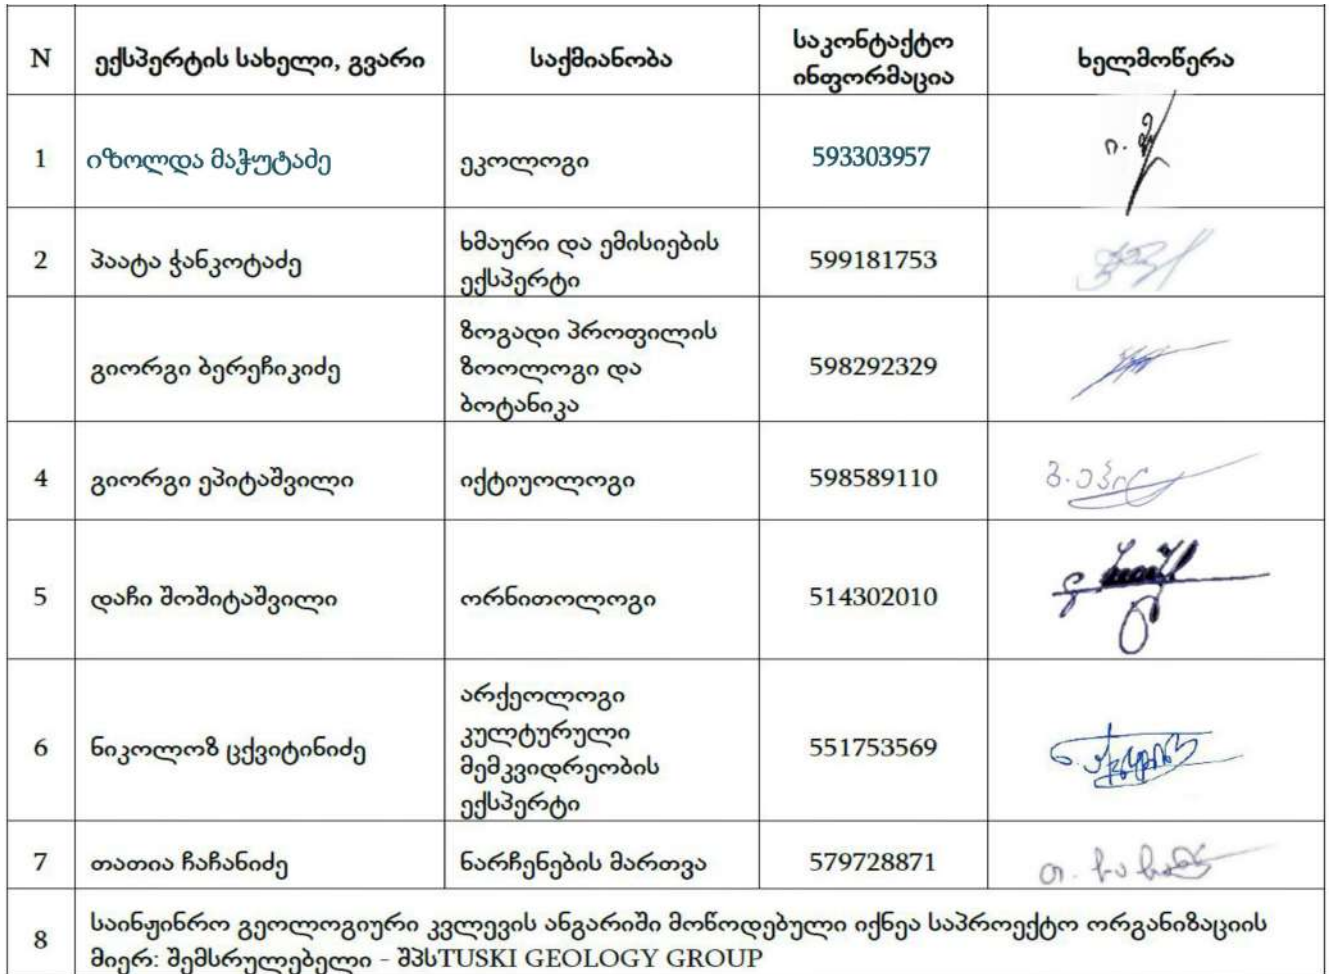 N ექსპერტის სახელი, გვარი საქმიანობა საკონტაქტო ინფორმაცია ხელმოწერა
1 იზოლდა მაჭუტაძე ეკოლოგი 593303957
2 პაატა ჭანკოტაძე ხმაური და ემისიების
ექსპერტი 599181753
გიორგი ბერეჩიკიძე ზოგადი პროფილის
ზოოლოგი და
ბოტანიკა 598292329
4 გიორგი ეპიტაშვილი იქტიუოლოგი 598589110
5 დაჩი შოშიტაშვილი ორნითოლოგი 514302010
6 ნიკოლოზ ცქვიტინიძე არქეოლოგი
კულტურული
მემკვიდრეობის
ექსპერტი 551753569
7 თათია ჩაჩანიძე ნარჩენების მართვა 579728871
8 საინჟინრო გეოლოგიური კვლევის ანგარიში მოწოდებული იქნეა საპროექტო ორგანიზაციის
მიერ: შემსრულებელი - შპსTUSKI GEOLOGY GROUP